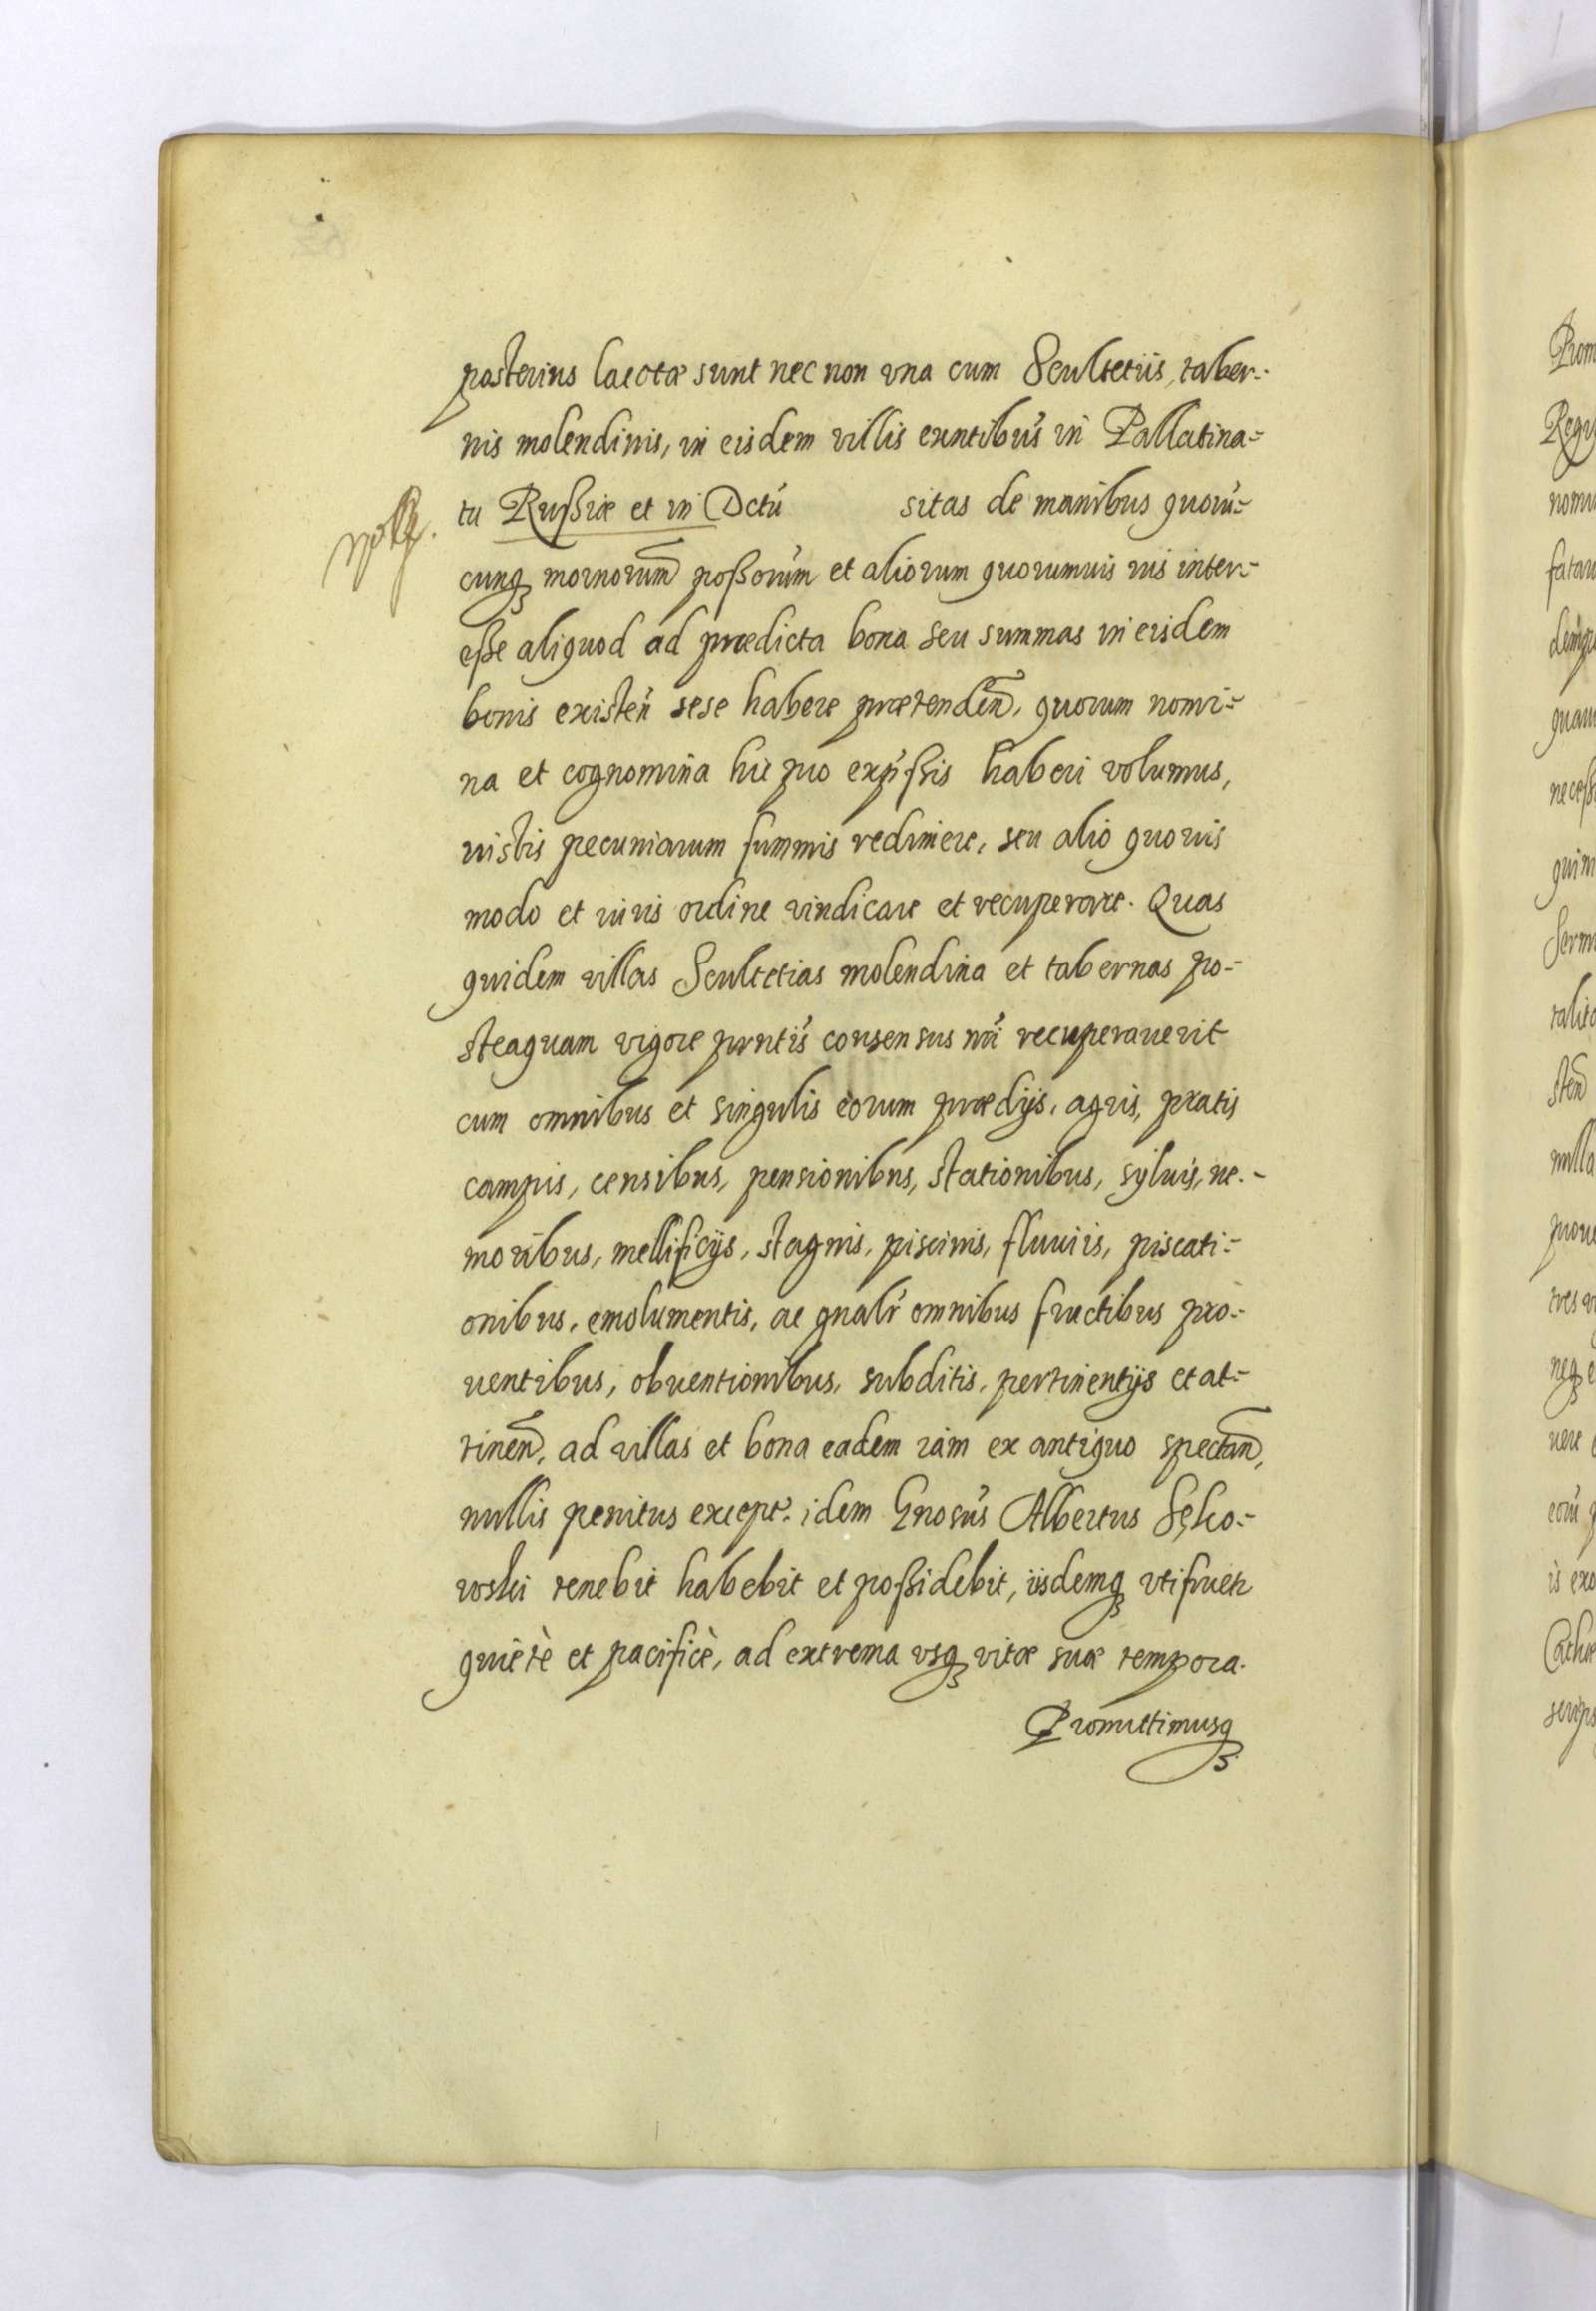 posterius laectæ sunt nec non vna cum Scultetiis, taber-
nis molendinis, in eisdem villis exntibus in Pallatina-
tu Rußiæ et in Dctu sitas de manibus quoru-
cunq mornorum poßorum et aliorum quorumuis ius inter-
eße aliquod ad prædicta bona seu summas in eisdem
bonis existen sese habere prætenden, quorum nomi-
na et cognomina hic pro expßis haberi volumus,
iustis pecuniarum summis redimere, seu alio quouis
modo et iuris ordine vindicare et recuperare. Quas
quidem villas Scultetias molendina et tabernas po-
steaquam vigore prntis consensus nri recuperauerit
cum omnibus et singulis eorum prædijs, agris, pratis
campis, censibus, pensionibus, stationibus, syluis, ne-
moribus, mellificijs, stagnis, piscinis, fluuiis, piscati-
onibus, emolumentis, ac gnalr omnibus fructibus pro-
uentibus, obuentionibus, subditis, pertinentijs et at-
tinen, ad villas et bona eadem iam ex antiquo spectan,
nullis penitus except. idem Gnosus Albertus Sęko-
wski tenebit habebit et poßidebit, iisdemq vtifruetr
quietè et pacificè, ad extrema vsq vitæ suæ tempora.
Promittimusq